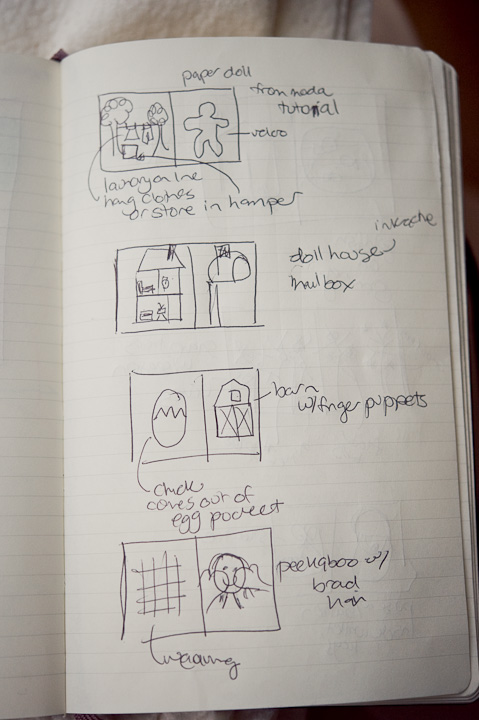 paper doll
from moda
tutorial
velcro
laundry on line
hang clothes
or store in hamper
doll house
mailbox
barn
w/finger puppets
chick
comes out of
egg pocket
peekaboo w/
braid
hair
weaving